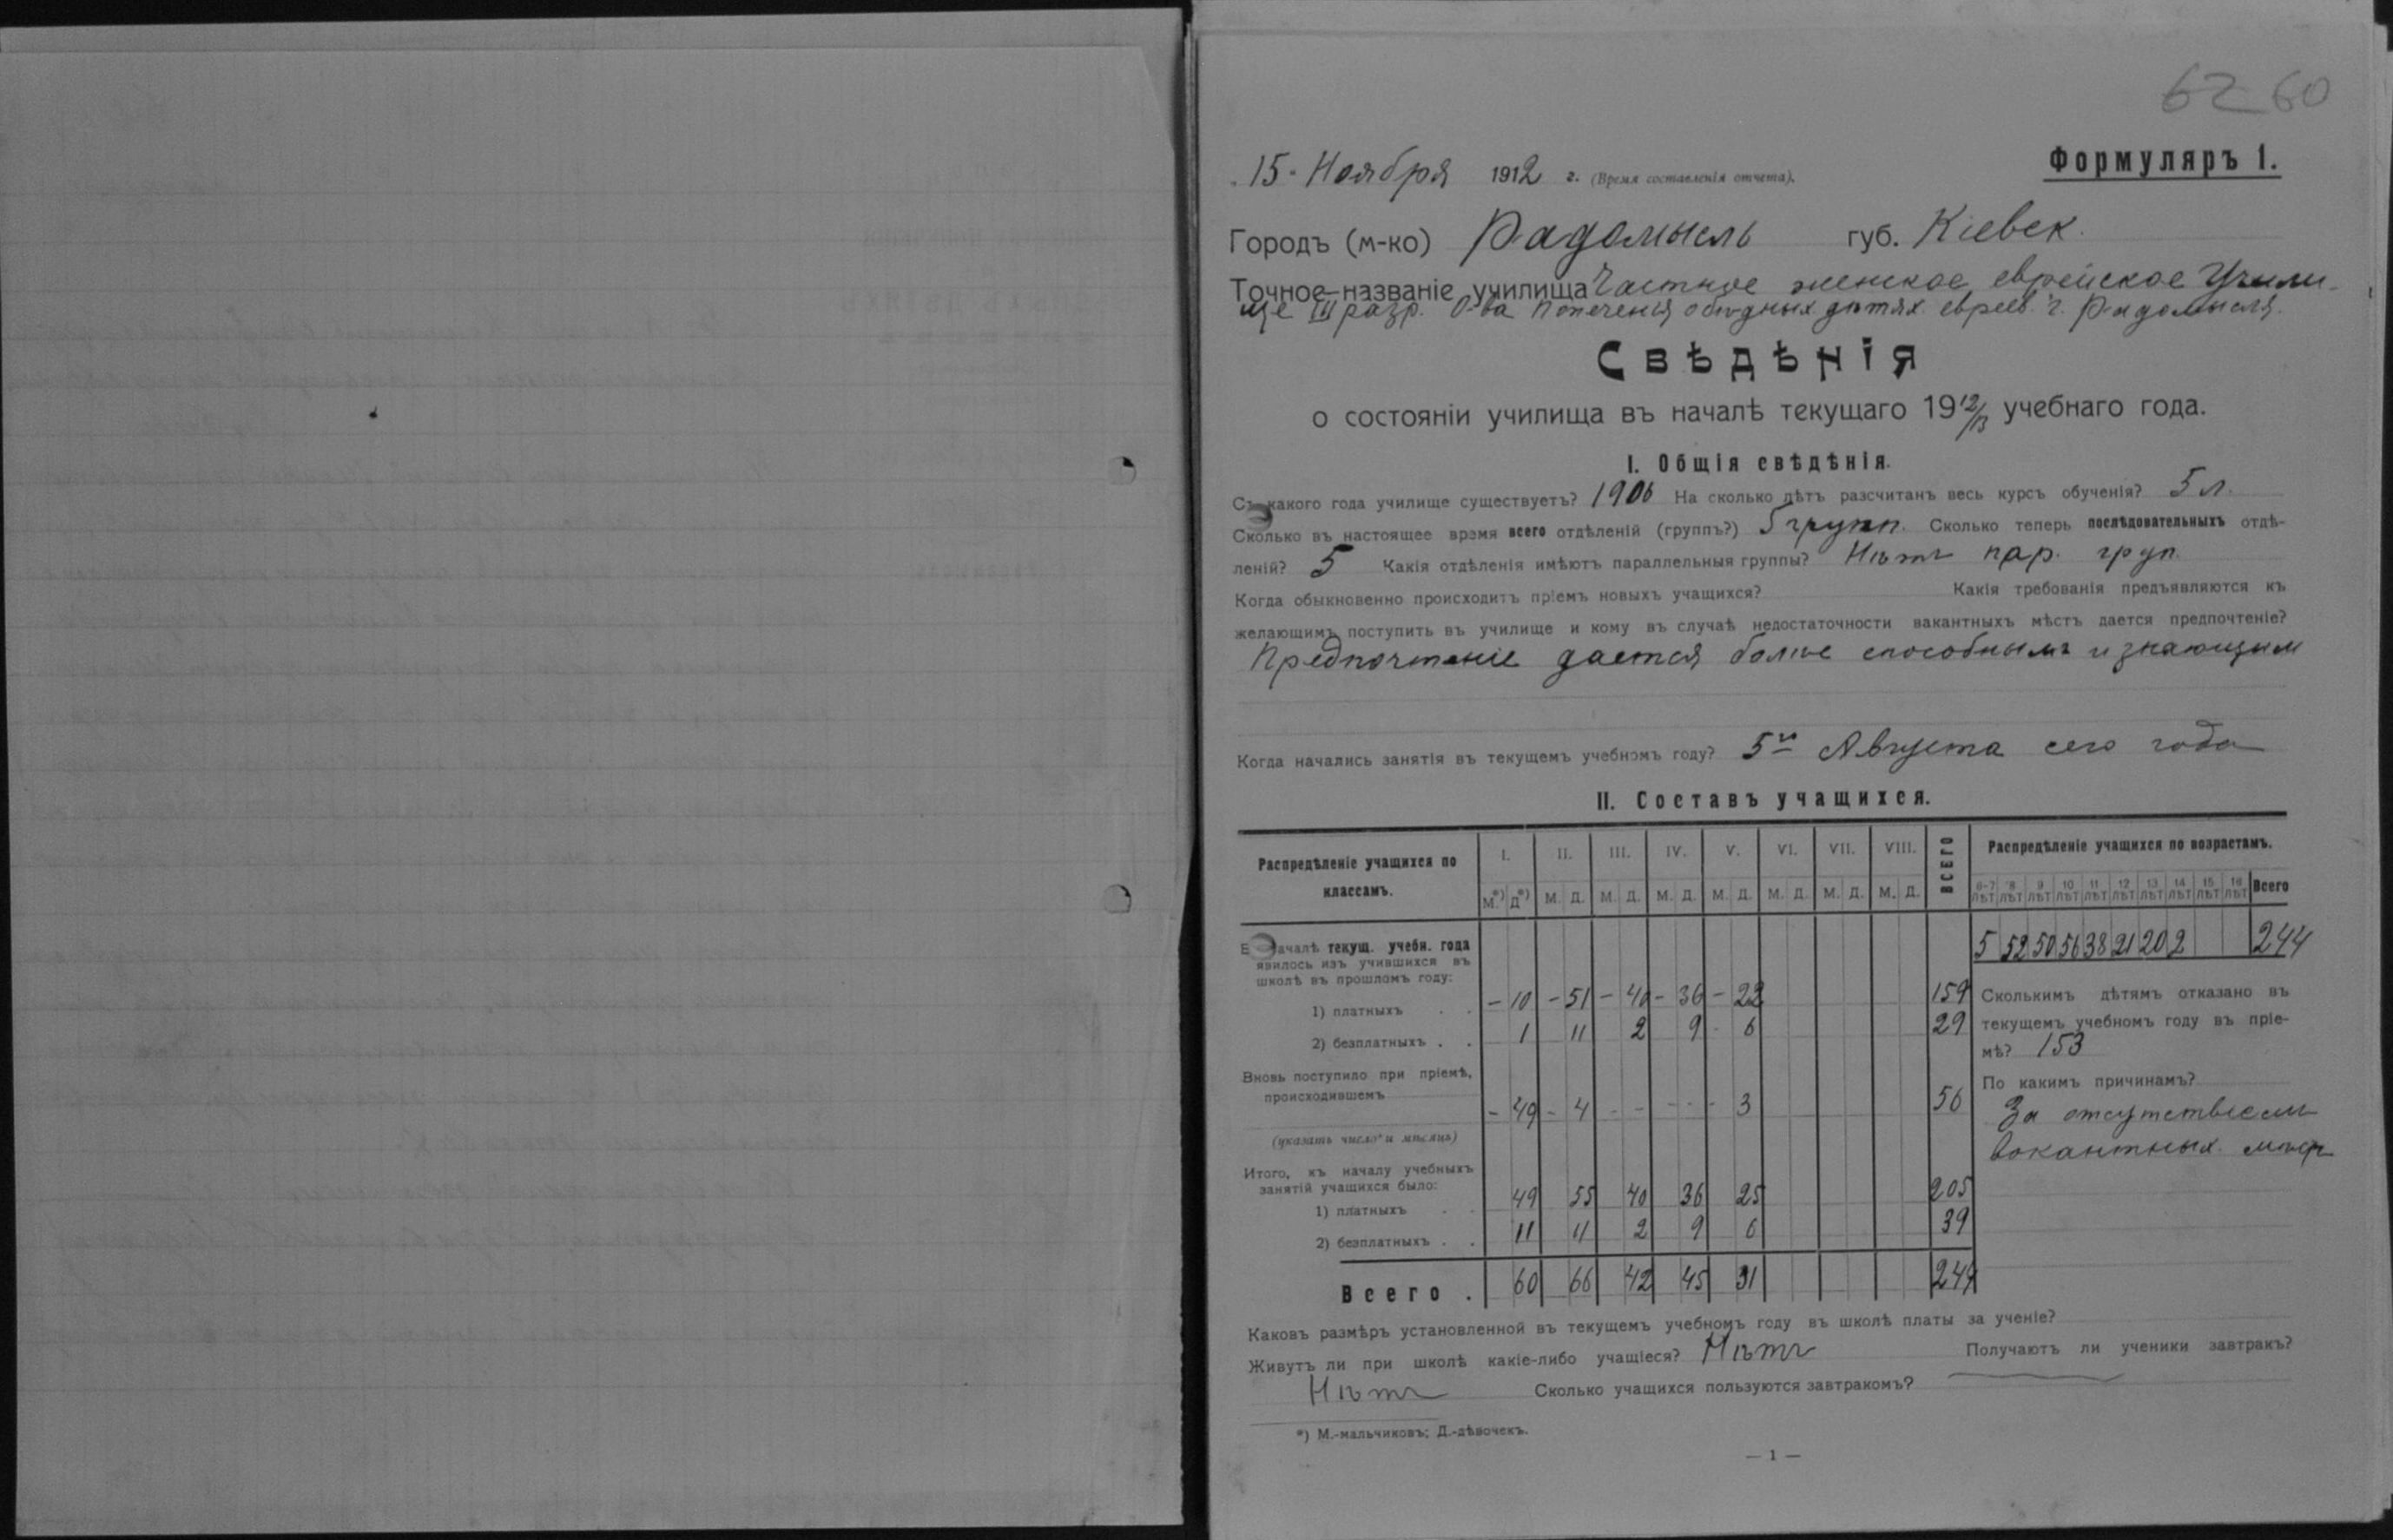 62 60
„15" Ноября 1912 г. (Время составленія отчета).
Формуляръ 1.
Городъ (м-ко) Радомысль губ. Кіевск.
Точное названіе училища Частное женское еврейское Учили-
ще III разр. О-ва попеченія о бѣдных дѣтях евреев г. Радомысля.
СВѢДѢНІЯ
о состояніи училища въ началѣ текущаго 1912/13 учебнаго года.
I. Общія свѣдѣнія.
Съ какого года училище существуетъ? 1906 На сколько лѣтъ разсчитанъ весь курсъ обученія? 5 л.
Сколько въ настоящее время всего отдѣленій (группъ?) 5 групп. Сколько теперь послѣдовательныхъ отдѣ-
леній? 5 Какія отдѣленія имѣютъ параллельныя группы? Нѣтъ пар. груп.
Когда обыкновенно происходитъ пріемъ новыхъ учащихся? Какія требованія предъявляются къ
желающимъ поступить въ училище и кому въ случаѣ недостаточности вакантныхъ мѣстъ дается предпочтеніе?
Предпочтеніе дается болѣе способнымъ и знающим
Когда начались занятія въ текущемъ учебномъ году? 5го Августа сего года
II. Составъ учащихся.
Распредѣленіе учащихся по классамъ. I. II. III. IV. V. VI. VII. VIII. ВСЕГО Распредѣленіе учащихся по возрастамъ.
М.*) Д*) М. Д. М. Д. М. Д. М. Д. М. Д. М. Д. М. Д. 6-7 лѣт 8 лѣт 9 лѣт 10 лѣт 11 лѣт 12 лѣт 13 лѣт 14 лѣт 15 лѣт 16 лѣт Всего
5 52 50 56 38 21 20 2 244
В началѣ текущ. учебн. года
явилось изъ учившихся въ
школѣ въ прошломъ году:
1) платныхъ . . – 10 – 51 – 40 – 36 – 22 159
2) безплатныхъ . . 1 11 2 9 - 6 29
Вновь поступило при пріемѣ,
происходившемъ – 49 – 4 - - - - - 3 56
(указать число и мѣсяцъ)
Итого, къ началу учебныхъ
занятій учащихся было:
1) платныхъ . . 49 55 40 36 25 205
2) безплатныхъ . . 11 11 2 9 6 39
Всего . 60 66 42 45 31 244
Сколькимъ дѣтямъ отказано въ
текущемъ учебномъ году въ пріе-
мѣ? 153
По какимъ причинамъ?
За отсутствіем
вокантных мѣст
Каковъ размѣръ установленной въ текущемъ учебномъ году въ школѣ платы за ученіе?
Живутъ ли при школѣ какіе-либо учащіеся? Нѣтъ Получаютъ ли ученики завтракъ?
Нѣтъ Сколько учащихся пользуются завтракомъ?
*) М.-мальчиковъ; Д.-дѣвочекъ.
— 1 —